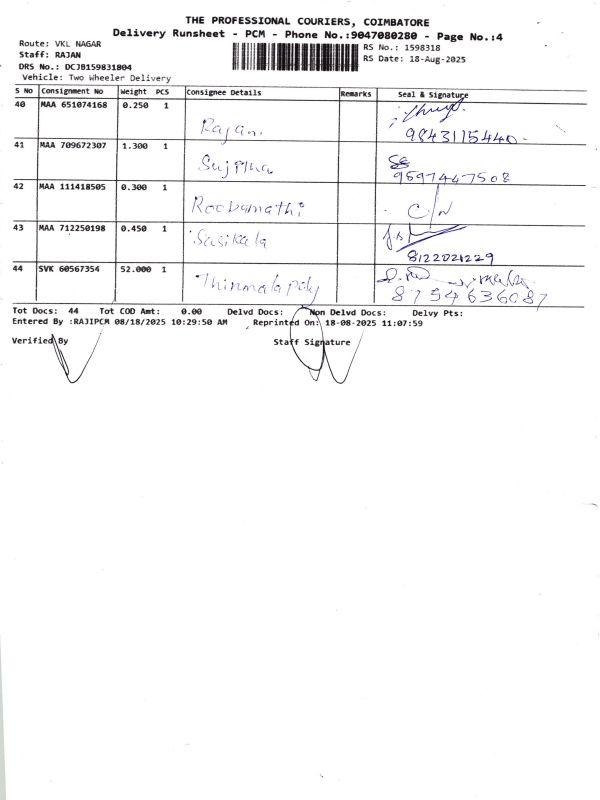 THE PROFESSIONAL COURIERS, COIMBATORE
Delivery Runsheet - PCM - Phone No.:9047080280 - Page No.:4
Route: VKL NAGAR
Staff: RAJAN
DRS No.: DCJB159831804
Vehicle: Two Wheeler Delivery
RS No.: 1598318
RS Date: 18-Aug-2025
S No Consignment No Weight PCS Consignee Details Remarks Seal & Signature
40 MAA 651074168 0.250 1 Rajan. 9843115440
41 MAA 709672307 1.300 1 Sujitha 9597447508
42 MAA 111418505 0.300 1 Roobamathi C/N
43 MAA 712250198 0.450 1 Sasikala 8122021229
44 SVK 60567354 52.000 1 8754636087
Tot Docs: 44 Tot COD Amt: 0.00 Delvd Docs: Non Delvd Docs: Delvy Pts:
Entered By :RAJIPCM 08/18/2025 10:29:50 AM Reprinted On: 18-08-2025 11:07:59
Verified By Staff Signature